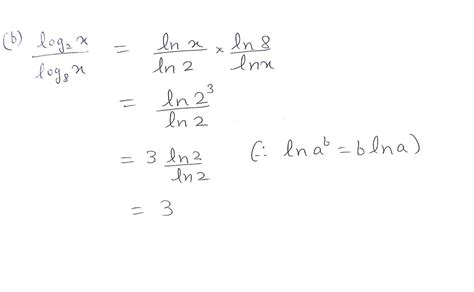 (b) log₂x / log₈x = ln x / ln 2 × ln 8 / lnx
= ln 2³ / ln 2
= 3 ln2 / ln2 (∵ ln aᵇ = b ln a)
= 3